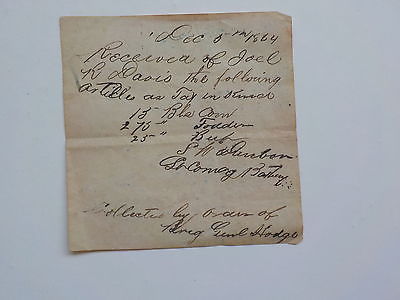 Dec 5th 1864
Received of Joel
R Davis the following
articles as Tax in Kind
15 Bls Corn
275 " Fodder
25 " Beef
S W
Lt Comdg Battery
Collected by order of
Brig Genl Hodge